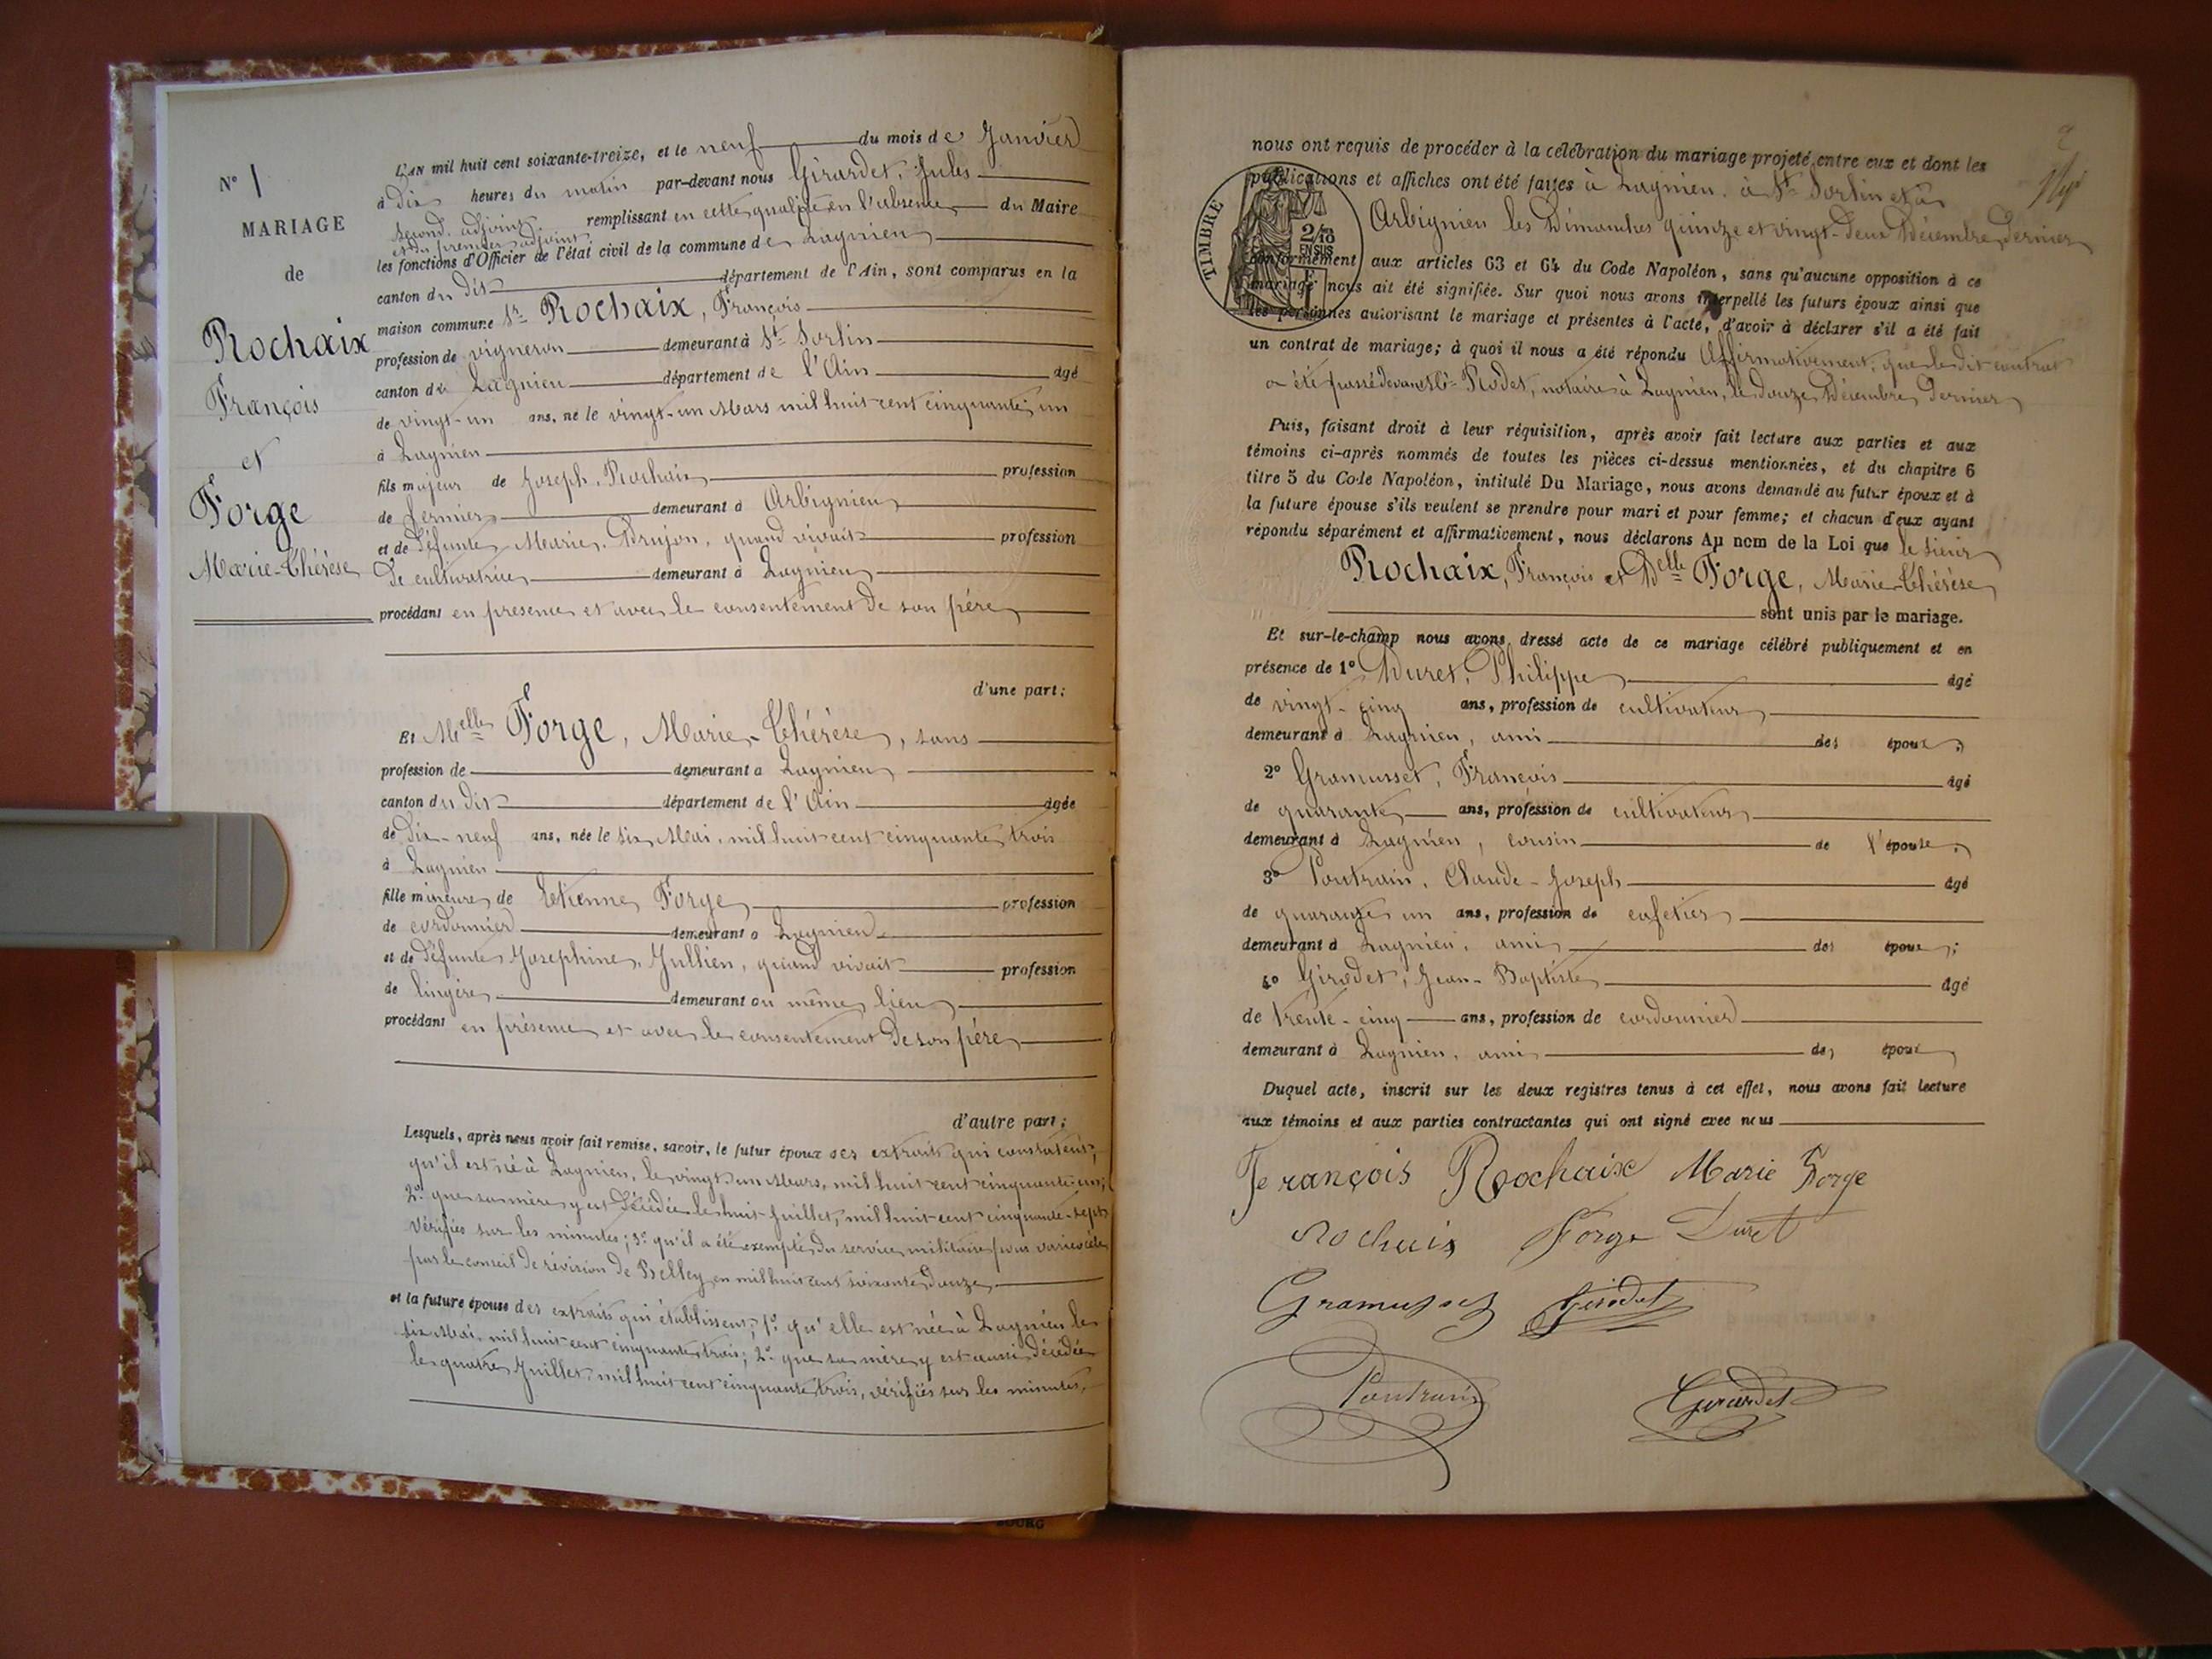 N° 1
MARIAGE
de
Rochaix
François
et
Forge
Marie-Thérèse
L'AN mil huit cent soixante-treize, et le neuf du mois de Janvier
à dix heures du matin par-devant nous Girardet, Jules
second adjoint remplissant en cette qualité en l'absence du Maire
et du premier adjoint
les fonctions d'Officier de l'état civil de la commune de Lagnieu
canton du dit département de l'Ain, sont comparus en la
maison commune Sr Rochaix, François
profession de vigneron demeurant à St Sorlin
canton de Lagnieu département de l'Ain âgé
de vingt-un ans, né le vingt-un Mars mil huit cent cinquante un
à Lagnieu
fils majeur de Joseph Rochaix profession
de fermier demeurant à Arbignieu
et de défunte Marie Drujon, quand vivait profession
de cultivatrice demeurant à Lagnieu
procédant en présence et avec le consentement de son père
d'une part;
Et Melle Forge, Marie-Thérèse, sans
profession de demeurant à Lagnieu
canton du dit département de l'Ain âgée
de dix-neuf ans, née le six Mai, mil huit cent cinquante trois
à Lagnieu
fille mineure de Etienne Forge profession
de cordonnier demeurant à Lagnieu
et de défunte Josephine Jullien, quand vivait profession
de lingère demeurant au même lieu
procédant en présence et avec le consentement de son père
d'autre part;
Lesquels, après nous avoir fait remise, savoir, le futur époux des extraits qui constatent,
qu'il est né à Lagnieu, le vingt un Mars, mil huit cent cinquante un;
2° que sa mère y est décédée le huit Juillet, mil huit cent cinquante-sept
vérifiés sur les minutes; 3° qu'il a été exempté du service militaire pour varicocèle
par le conseil de révision de Belley en mil huit cent soixante douze
et la future épouse des extraits qui établissent, 1° qu'elle est née à Lagnieu le
six Mai, mil huit cent cinquante trois; 2° que sa mère y est aussi décédée
le quatre Juillet, mil huit cent cinquante trois, vérifiés sur les minutes,
2
nous ont requis de procéder à la célébration du mariage projeté entre eux et dont les
publications et affiches ont été faites à Lagnieu, à St Sorlin et à
Arbignieu les Dimanches quinze et vingt-deux Décembre dernier
conformément aux articles 63 et 64 du Code Napoléon, sans qu'aucune opposition à ce
mariage nous ait été signifiée. Sur quoi nous avons interpellé les futurs époux ainsi que
les personnes autorisant le mariage et présentes à l'acte, d'avoir à déclarer s'il a été fait
un contrat de mariage; à quoi il nous a été répondu Affirmativement, que le dit contrat
a été passé devant Me Rodet, notaire à Lagnieu, le douze Décembre dernier
TIMBRE
2/10
EN SUS
Puis, faisant droit à leur réquisition, après avoir fait lecture aux parties et aux
témoins ci-après nommés de toutes les pièces ci-dessus mentionnées, et du chapitre 6
titre 5 du Code Napoléon, intitulé Du Mariage, nous avons demandé au futur époux et à
la future épouse s'ils veulent se prendre pour mari et pour femme; et chacun d'eux ayant
répondu séparément et affirmativement, nous déclarons Au nom de la Loi que le sieur
Rochaix, François et Delle Forge, Marie-Thérèse
sont unis par le mariage.
Et sur-le-champ nous avons dressé acte de ce mariage célébré publiquement et en
présence de 1° Duret, Philippe âgé
de vingt-cinq ans, profession de cultivateur
demeurant à Lagnieu, ami des époux,
2° Gramusset, François âgé
de quarante ans, profession de cultivateur
demeurant à Lagnieu, cousin de l'épouse,
3° Poutrain, Claude-Joseph âgé
de quarante un ans, profession de cafetier
demeurant à Lagnieu, ami des époux;
4° Girodet, Jean-Baptiste âgé
de trente-cinq ans, profession de cordonnier
demeurant à Lagnieu, ami des époux
Duquel acte, inscrit sur les deux registres tenus à cet effet, nous avons fait lecture
aux témoins et aux parties contractantes qui ont signé avec nous
François Rochaix Marie Forge
Rochaix Forge Duret
Gramusset Girodet
Poutrain Girardet
BOURG